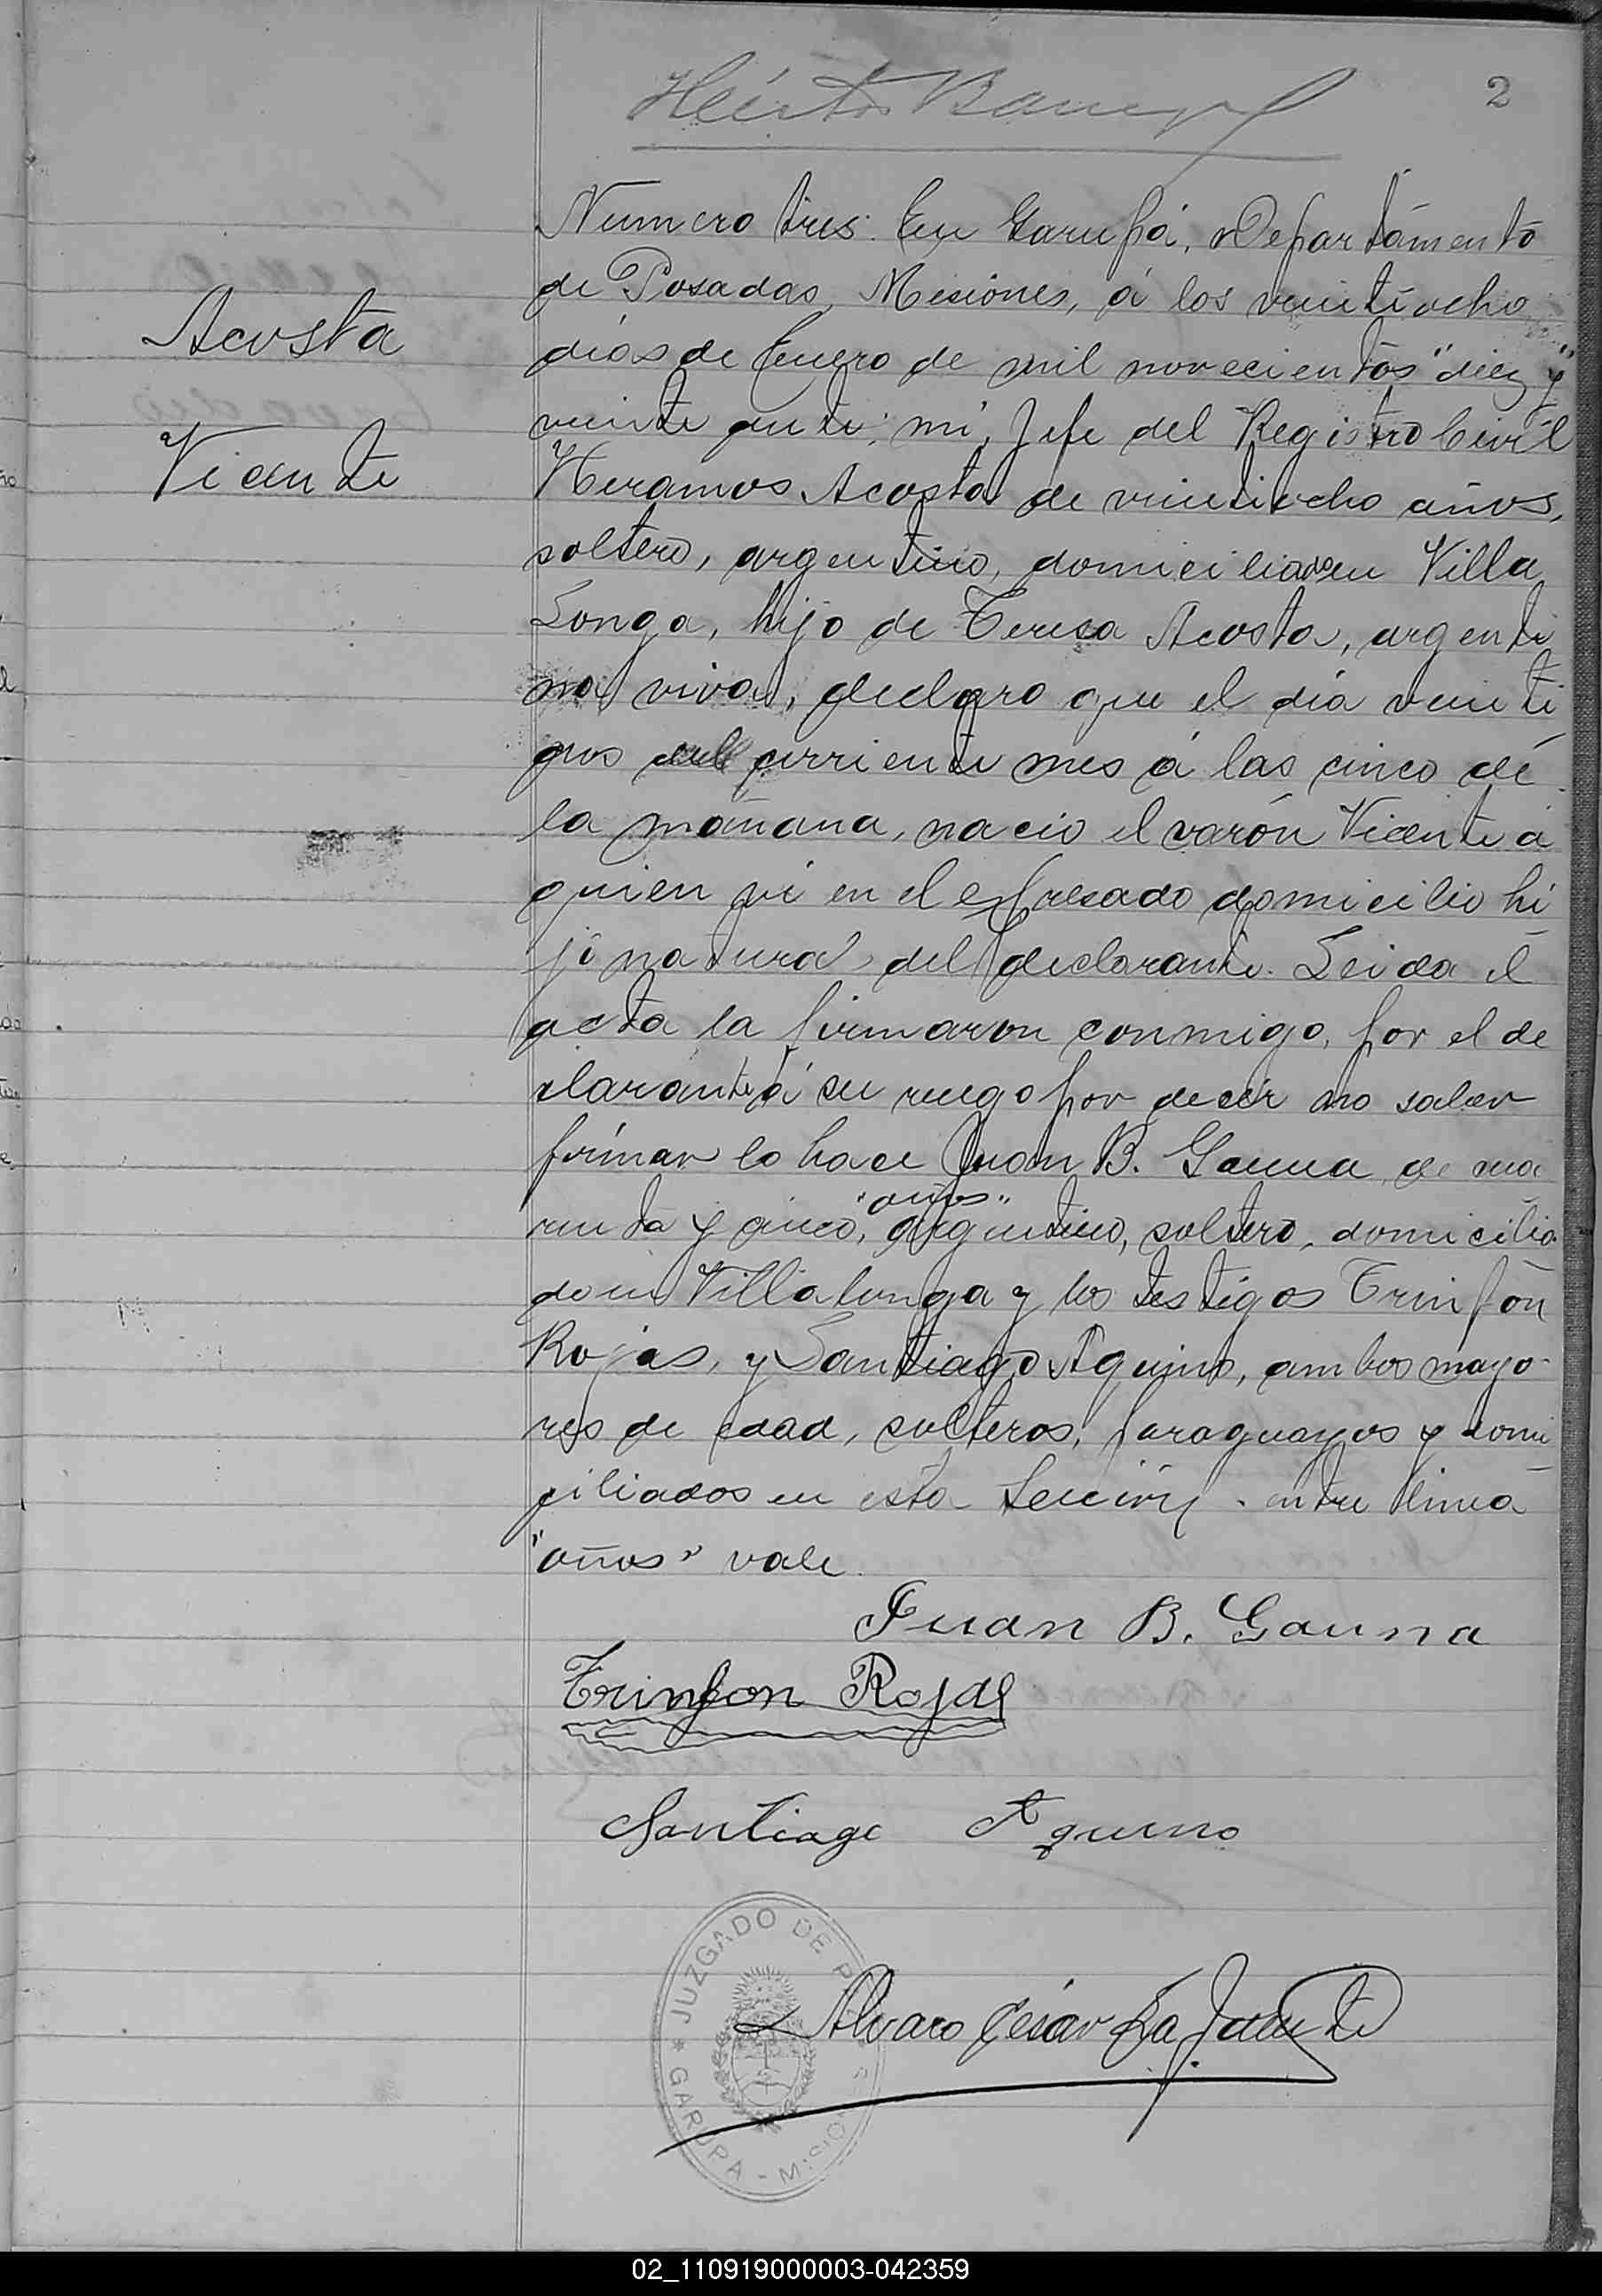 2
Numero tres. En Garupá, Departamento
de Posadas, Misiones, á los veintiocho
Acosta
dias de Enero de mil novecientos "diez y"
veinte ante mi, Jefe del Registro Civil
Vicente
Acosta de veintiocho años,
soltero, argentino, domiciliado en Villa
Longa, hijo de Teresa Acosta, argenti
na viva, declaro que el dia veinti
dos del corriente mes á las cinco de
la mañana, nacio el varón Vicente á
quien vi en el expresado domicilio hi
jo natural del declarante. Leida el
acta la firmaron conmigo, por el de
clarante á su ruego por decir no saber
firmar lo hace Juan B. Gauna, de
renta y cinco, "años" argentino, soltero, domicilia
do en Villa longa y los testigos Trinfon
Rojas, y Santiago Aquino, ambos mayo-
res de edad, solteros, paraguayos y domi
ciliados en esta Sección. entre linea
"años" vale.
Juan B. Gauna
Trinfon Rojas
Santiago Aquino
JUZGADO DE P
Alvaro César La Fuente
GARUPA - MISIONES
02_110919000003-042359